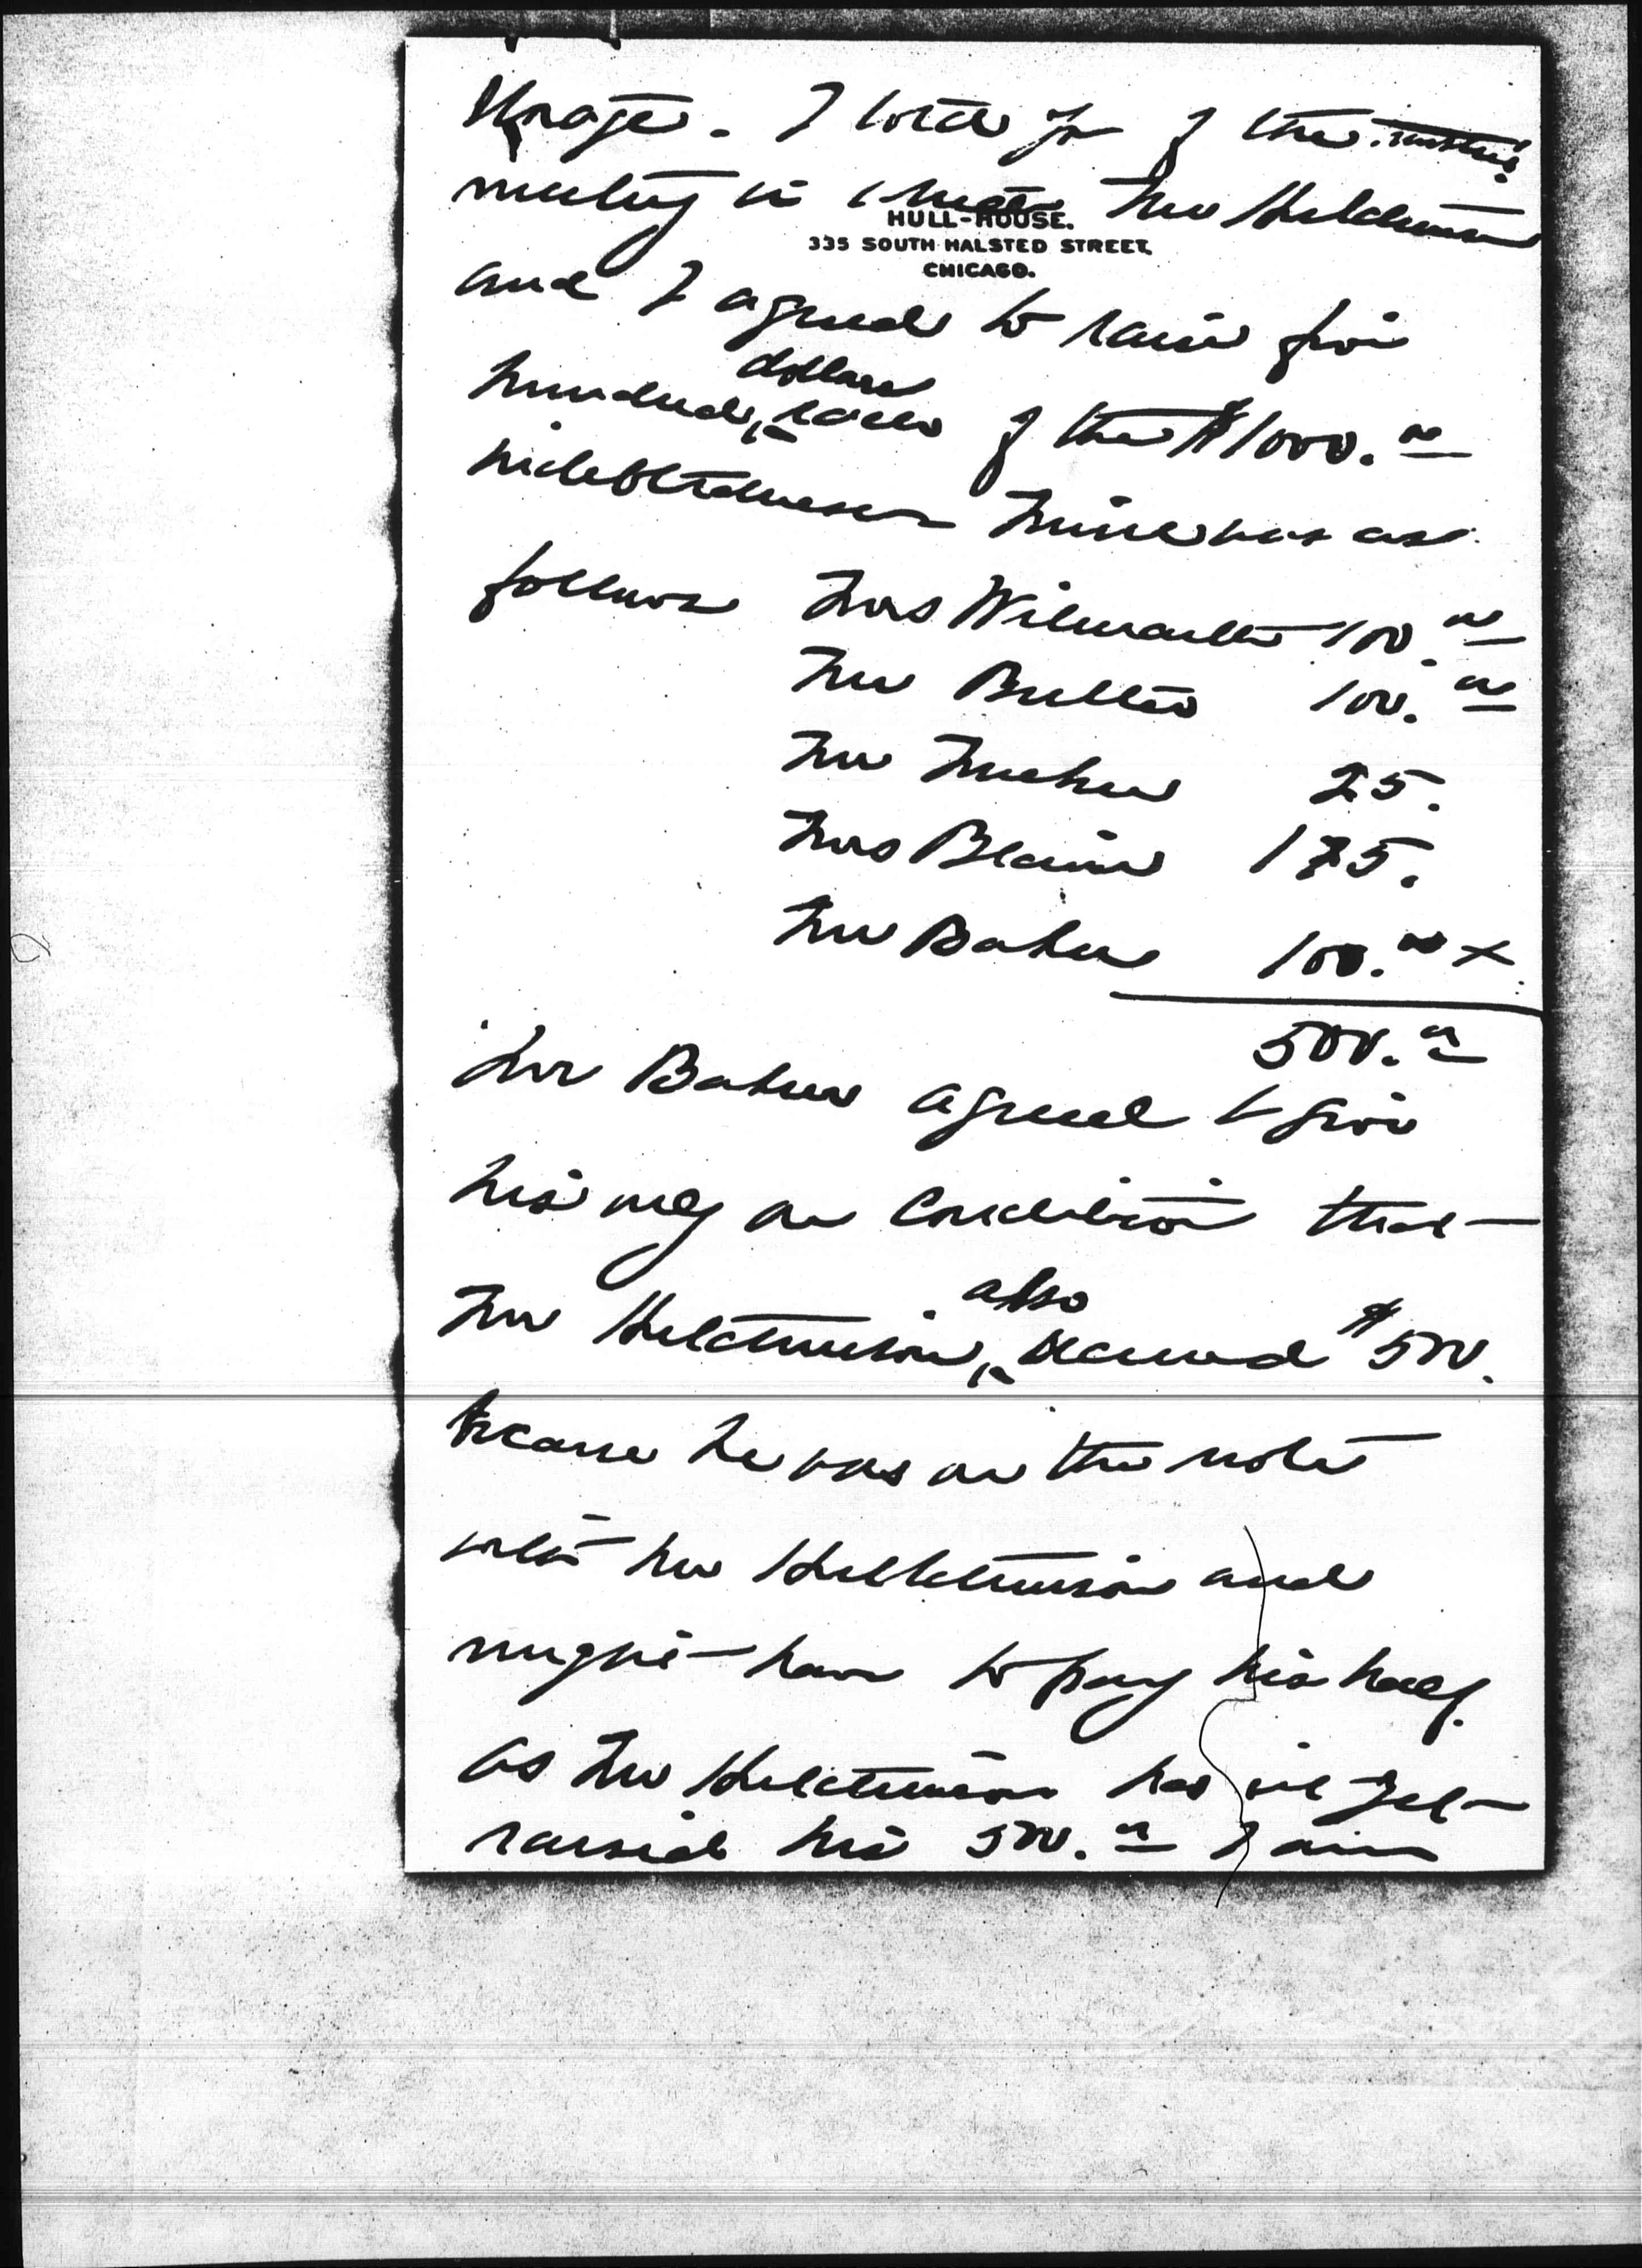 storage. I told you of the trustees
meeting in which Mr Hutchinson
HULL-HOUSE.
335 SOUTH HALSTED STREET,
CHICAGO.
and I agreed to raise five
hundred dollars each of the $1000.00
indebtedness Mine was as
follows Mrs Wilmarth 100.00
Mr Butler 100.00
25.
Mrs Blaine 175.
Mr Baker 100.00 x
500.00
Mr Baker agreed to give
his only on condition that
Mr Hutchinson also secured $500.
because he was on the note
with Mr Hutchinson and
might have to pay his half.
As Mr Hutchinson has not yet
raised his 500.00 I am